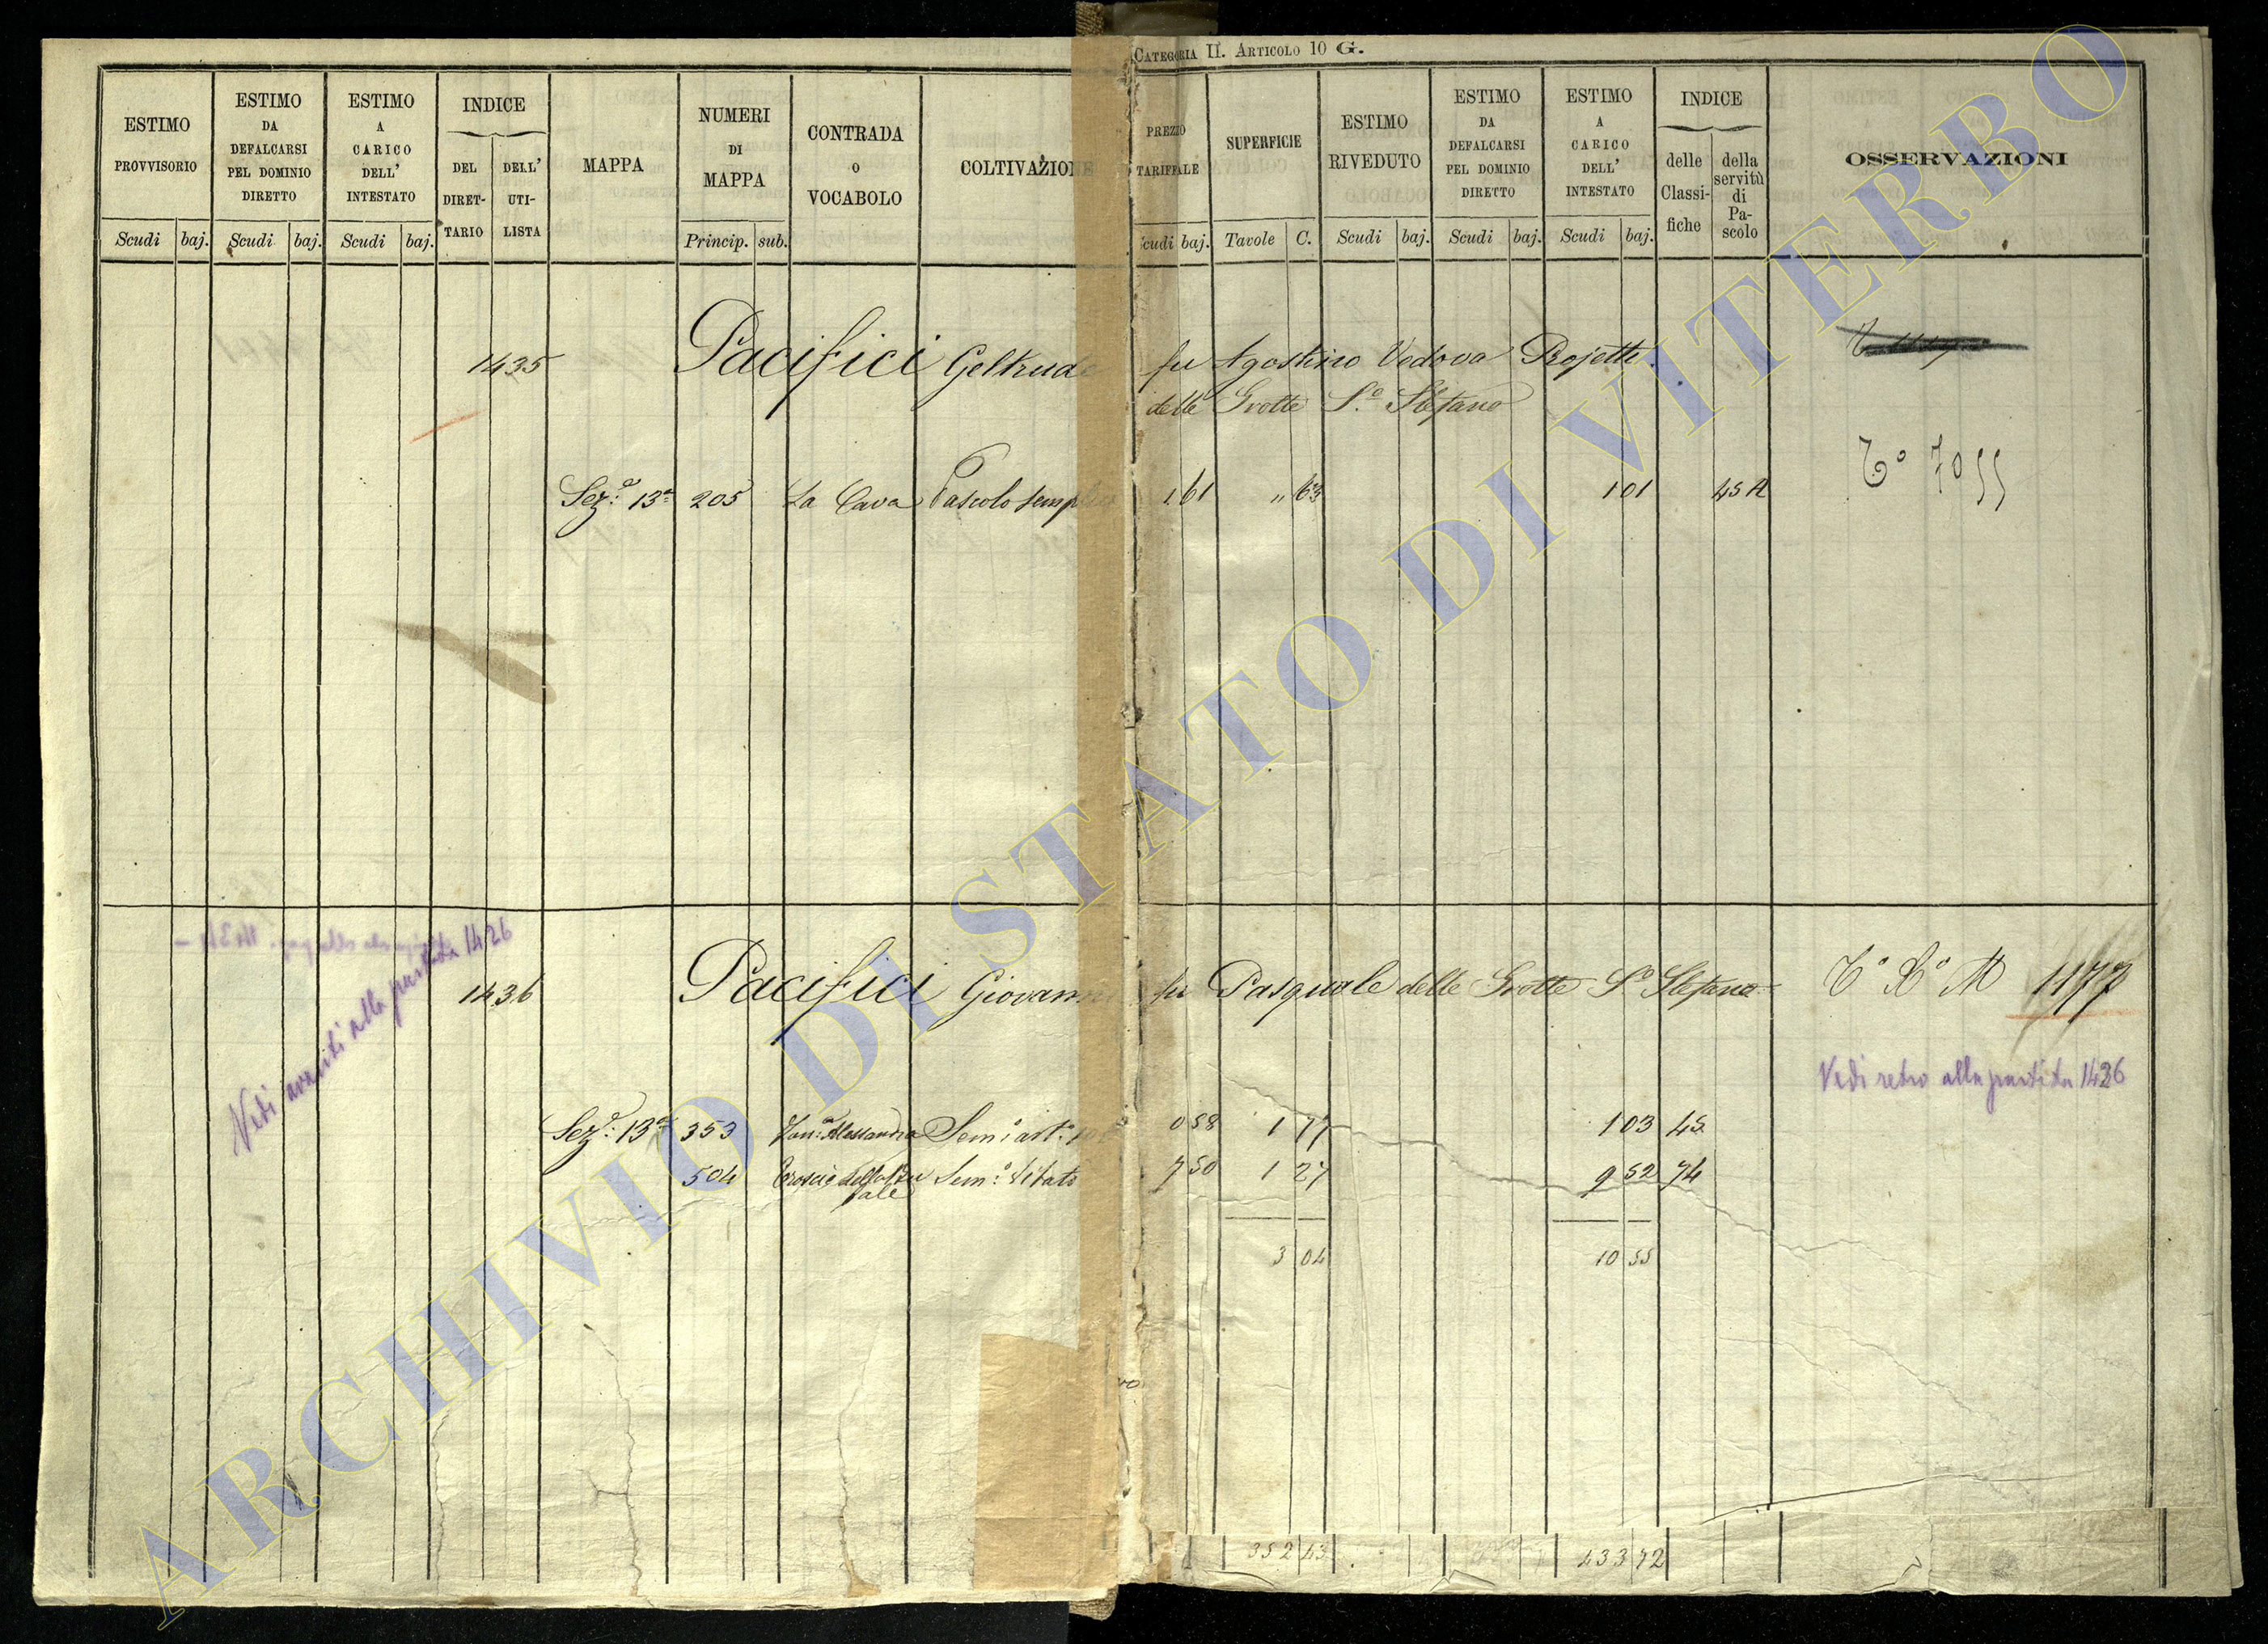 CATEGORIA II. ARTICOLO 10 G.
ESTIMO PROVVISORIO
Scudi baj.
ESTIMO DA DEFALCARSI PEL DOMINIO DIRETTO
Scudi baj.
ESTIMO A CARICO DELL' INTESTATO
Scudi baj.
INDICE
DEL DIRET-TARIO
DELL' UTI-LISTA
MAPPA
NUMERI DI MAPPA
Princip. sub.
CONTRADA O VOCABOLO
COLTIVAZIONE
PREZZO TARIFFALE
Scudi baj.
SUPERFICIE
Tavole C.
ESTIMO RIVEDUTO
Scudi baj.
ESTIMO DA DEFALCARSI PEL DOMINIO DIRETTO
Scudi baj.
ESTIMO A CARICO DELL' INTESTATO
Scudi baj.
INDICE
delle Classi-fiche
della servitù di Pa-scolo
OSSERVAZIONI
1435 Pacifici Geltrude fu Agostino Vedova Rojetti
delle Grotte S.º Stefano
Sez.ª 13ª 205 La Cava Pascolo semplice 1 61 " 63 1 01 45 A
Tº 7055
Vedi avanti alla partita 1426
1436 Pacifici Giovanni fu Pasquale delle Grotte Sº Stefano Tº Xº M 1177
Vedi retro alla partita 1426
Sez.ª 13ª 353 Alessandra Sem.º 0 58 1 77 1 03 45
504 Sem.º Vitato 7 50 1 27 9 52 74
3 04 10 55
352 43 433 72
ARCHIVIO DI STATO DI VITERBO